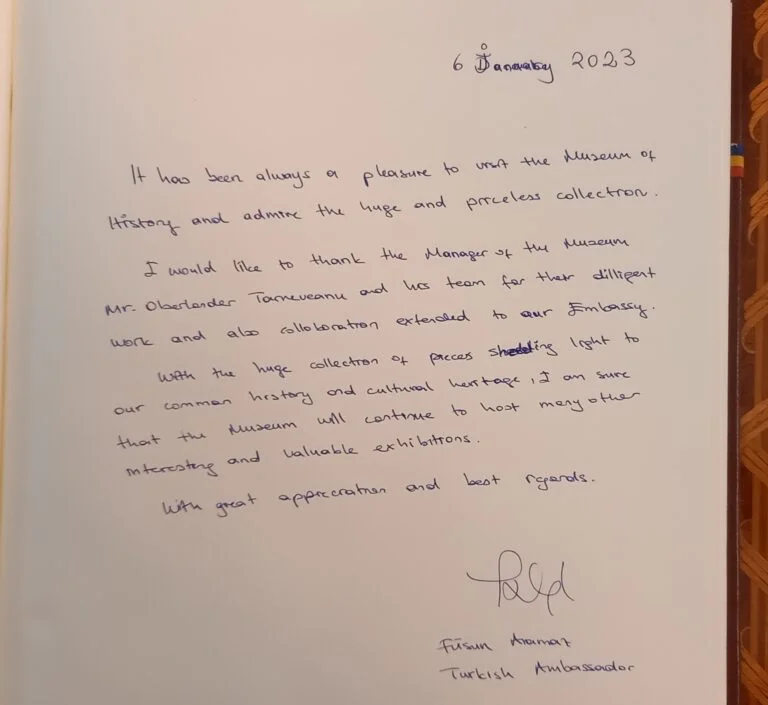 6 January 2023
It has been always a pleasure to visit the Museum of
History and admire the huge and priceless collection.
I would like to thank the Manager of the Museum
Mr. Oberlander Tarneveanu and his team for their dilligent
work and also colloboration extended to our Embassy.
With the huge collection of pieces shedding light to
our common history and cultural heritage, I am sure
that the Museum will continue to host many other
interesting and valuable exhibitions.
With great appreciation and best regards.
Füsun Aramaz
Turkish Ambassador